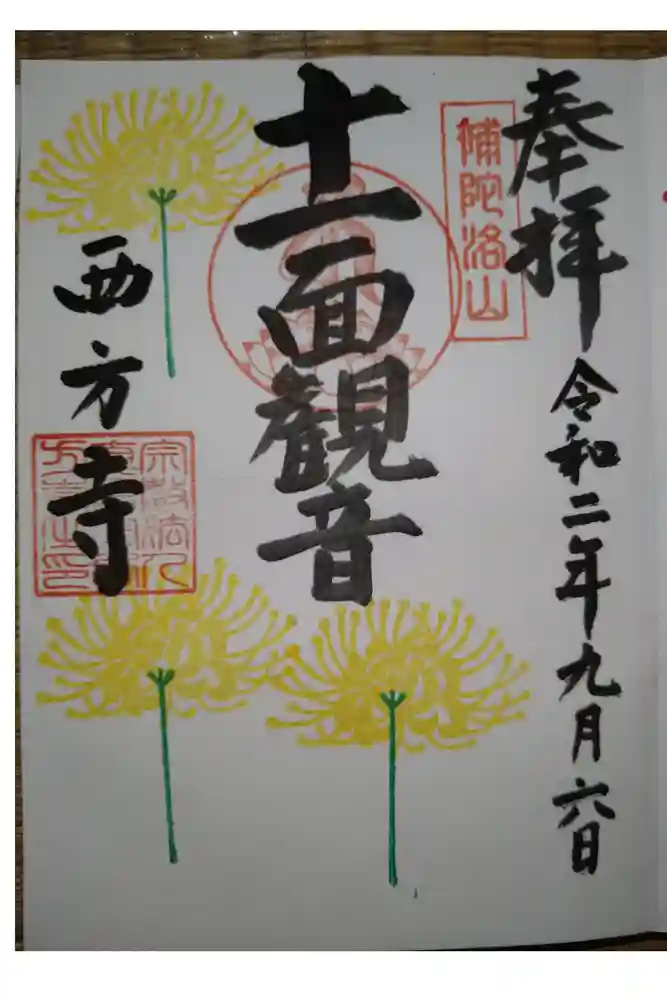 奉拝
令和二年九月六日
補陀洛山
十一面観音
西方寺